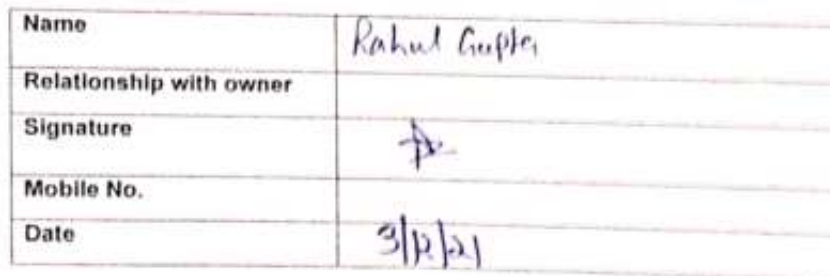 Name Rahul Gupta
Relationship with owner
Signature
Mobile No.
Date 3/12/21